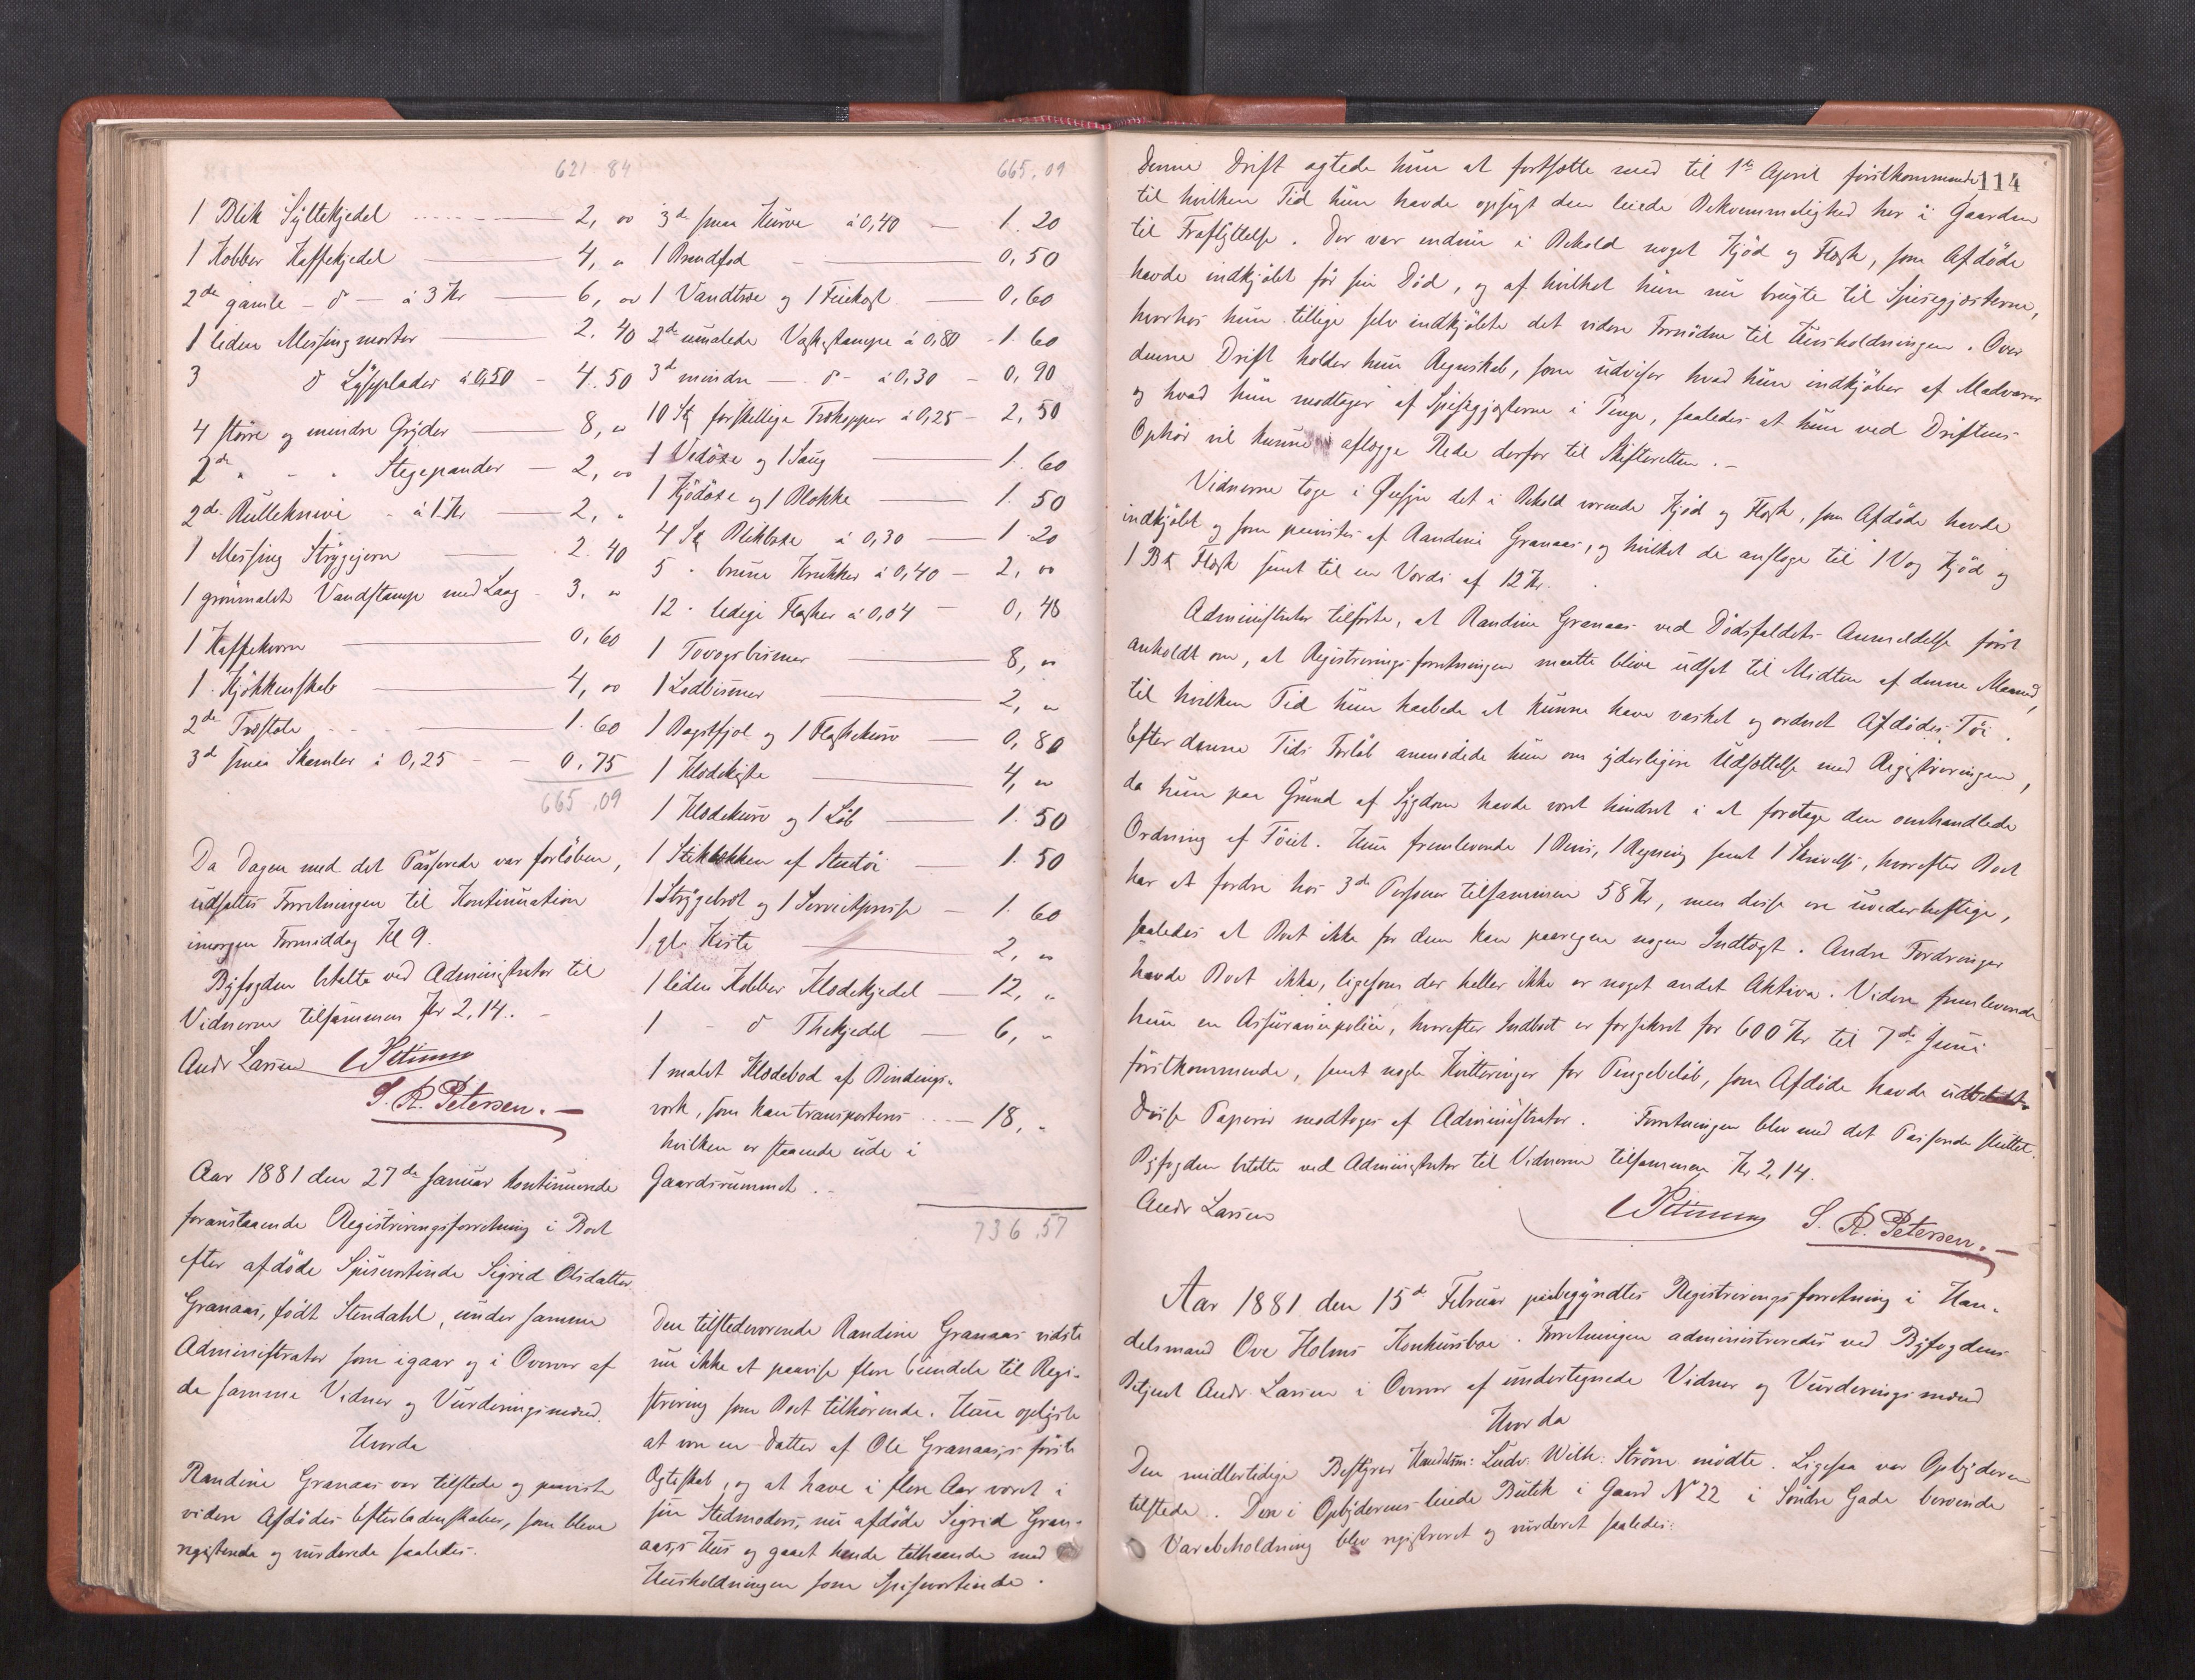 621.84
1 Blik Syltekjedel — 2, 00
1 Kobber Kaffekjedel — 4, "
2de gamle - do - à 3 Kr — 6, 00
1 liden Messingmorter — 2. 40
3 do Lyseplader à 1,50 - 4.50
4 større og mindre Gryder — 8, "
2de " - " Stegepander — 2, 00
2de Rulleknive - à 1 Kr — 2, "
1 Messing Strygejern — 2. 40
1 grönmalet Vandstampe med Laag - 3. "
1 Kaffekvern — 0,60
1 Kjökkenskab — 4, 00
2de Træstole — 1.60
3de smaa Skamler à 0,25 - 0.75
665.09
Da Dagen med det Passerede var forløben,
udsattes Forretningen til Kontinuation
imorgen Formiddag Kl 9.
Byfogden betalte ved Administrator til
Vidnerne tilsammen Kr 2,14. -
Andr Larsen Petersen
S. R. Petersen. —
Aar 1881 den 27de Januar kontinuerede
foranstaaende Registreringsforretning i Boet
efter afdöde Spisevertinde Sigrid Olsdatter
Granaas, födt Stendahl, under samme
Administrator som igaar og i Overvær af
de samme Vidner og Vurderingsmænd.
Hvorda
Randine Granaas var tilstede og paaviste
videre Afdödes Efterladenskaber, som bleve
registrerede og vurderede saaledes:
665.09
3de smaa Kurve à 0,40 — 1.20
1 Brændfad — 0,50
1 Vandtræ og 1 Feiekost — 0,60
2de umalede Vaskestampe à 0,80 - 1.60
3de mindre — do - à 0,30 - 0,90
10 Stk forskellige Trækopper à 0,25 - 2,50
1 Vedöxe og 1 Saug — 1.60
1 Kjödöxe og 1 Blokke — 1.50
4 Stk Blikboxe à 0,30 — 1.20
5 " brune Krukker à 0,40 — 2,00
12 " ledige Flasker à 0,04 — 0,48
1 Tovogsbismer — 8, "
1 Lodbismer — 2, "
1 Bagstfjol og 1 Flaskekurv — 0,80
1 Klædekiste — 4, "
1 Klædekurv og 1 Löb — 1.50
1 Stikbækken af Stentöi — 1.50
1 Strygebræt og 1 Servietpresse — 1.60
1 gl. Kiste — 2, "
1 liden Kobber Klædekjedel — 12, "
1 - do Thekjedel — 6, "
1 malet Klædebod af Bindings-
værk, som kan transporteres — 18, "
hvilken er staaende ude i
Gaardsrummet. -
736.57
Den tilstedeværende Randine Granaas vidste
nu ikke at paavise flere Eiendele til Regi-
strering som Boet tilhörende. Hun oplyste
at være en Datter af Ole Granaas's förste
Ægteskab, og at have i flere Aar været i
sin Stedmoders, nu afdöde Sigrid Gran-
aas's Hus og gaaet hende tilhaande med
Husholdningen som Spisevertinde.
114
Denne Drift agtede hun at fortsætte med til 1te April førstkommende
til hvilken Tid hun havde opsagt den leiede Bekvemmelighed her i Gaarden
til Fraflyttelse. Der var endnu i Behold noget Kjöd og Flesk, som Afdöde
havde indkjöbt för sin Död, og af hvilket hun nu brugte til Spisegjæsterne,
hvorhos hun tillige selv indkjöbte det videre Fornödne til Husholdningen. Over
denne Drift holder hun Regnskab, som udviser hvad hun indkjöber af Madvarer
og hvad hun modtager af Spisegjæsterne i Penge, saaledes at hun ved Driftens
Ophör vil kunne aflægge Rede derfor til Skifteretten. -
Vidnerne toge i Øiesyn det i Behold værende Kjöd og Flesk, som Afdöde havde
indkjöbt og som paavistes af Randine Granaas, og hvilket de ansloge til 1 Vog Kjöd og
1 B Flesk samt til en Værdi af 12 Kr.
Administrator tilförte, at Randine Granaas ved Dödsfaldets Anmeldelse först
anholdt om, at Registreringsforretningen maatte blive udsat til Midten af denne Maaned,
til hvilken Tid hun haabede at kunne have vasket og ordnet Afdödes Töi.
Efter denne Tids Forlöb anmodede hun om yderligere Udsættelse med Registreringen,
da hun paa Grund af Sygdom havde været hindret i at foretage den omhandlede
Ordning af Töiet. Hun fremleverede 1 Bevis, 1 Regning samt 1 Skrivelse, hvorefter Boet
har at fordre hos 3de Personer tilsammen 58 Kr, men disse ere uvederheftige,
saaledes at Boet ikke for dem kan paaregne nogen Indtægt. Andre Fordringer
havde Boet ikke, ligesom der heller ikke er noget andet Aktiva. Videre fremleverede
hun en Assurancepolice, hvorefter Indboet er forsikret for 600 Kr til 7de Juni
förstkommende, samt nogle Kvitteringer for Pengebelöb, som Afdöde havde udbetalt.
Disse Papirer modtoges af Administrator. Forretningen blev med det Passerede sluttet.
Byfogden betalte ved Administrator til Vidnerne tilsammen Kr 2,14.
Andr Larsen Petersen S. R. Petersen. —
Aar 1881 den 15de Februar paabegyndtes Registreringsforretning i Han-
delsmand Ove Holms Konkursbo. Forretningen administreredes ved Byfogdens
Betjent Andr. Larsen i Overvær af undertegnede Vidner og Vurderingsmænd
Hvorda
Den midlertidige Bestyrer Handelsm: Ludv. Wilh. Ström mödte. Ligesaa var Opbyderen
tilstede. Den i Opbyderens leiede Butik i Gaard No 22 i Söndre Gade beroende
Varebeholdning blev registreret og vurderet saaledes: